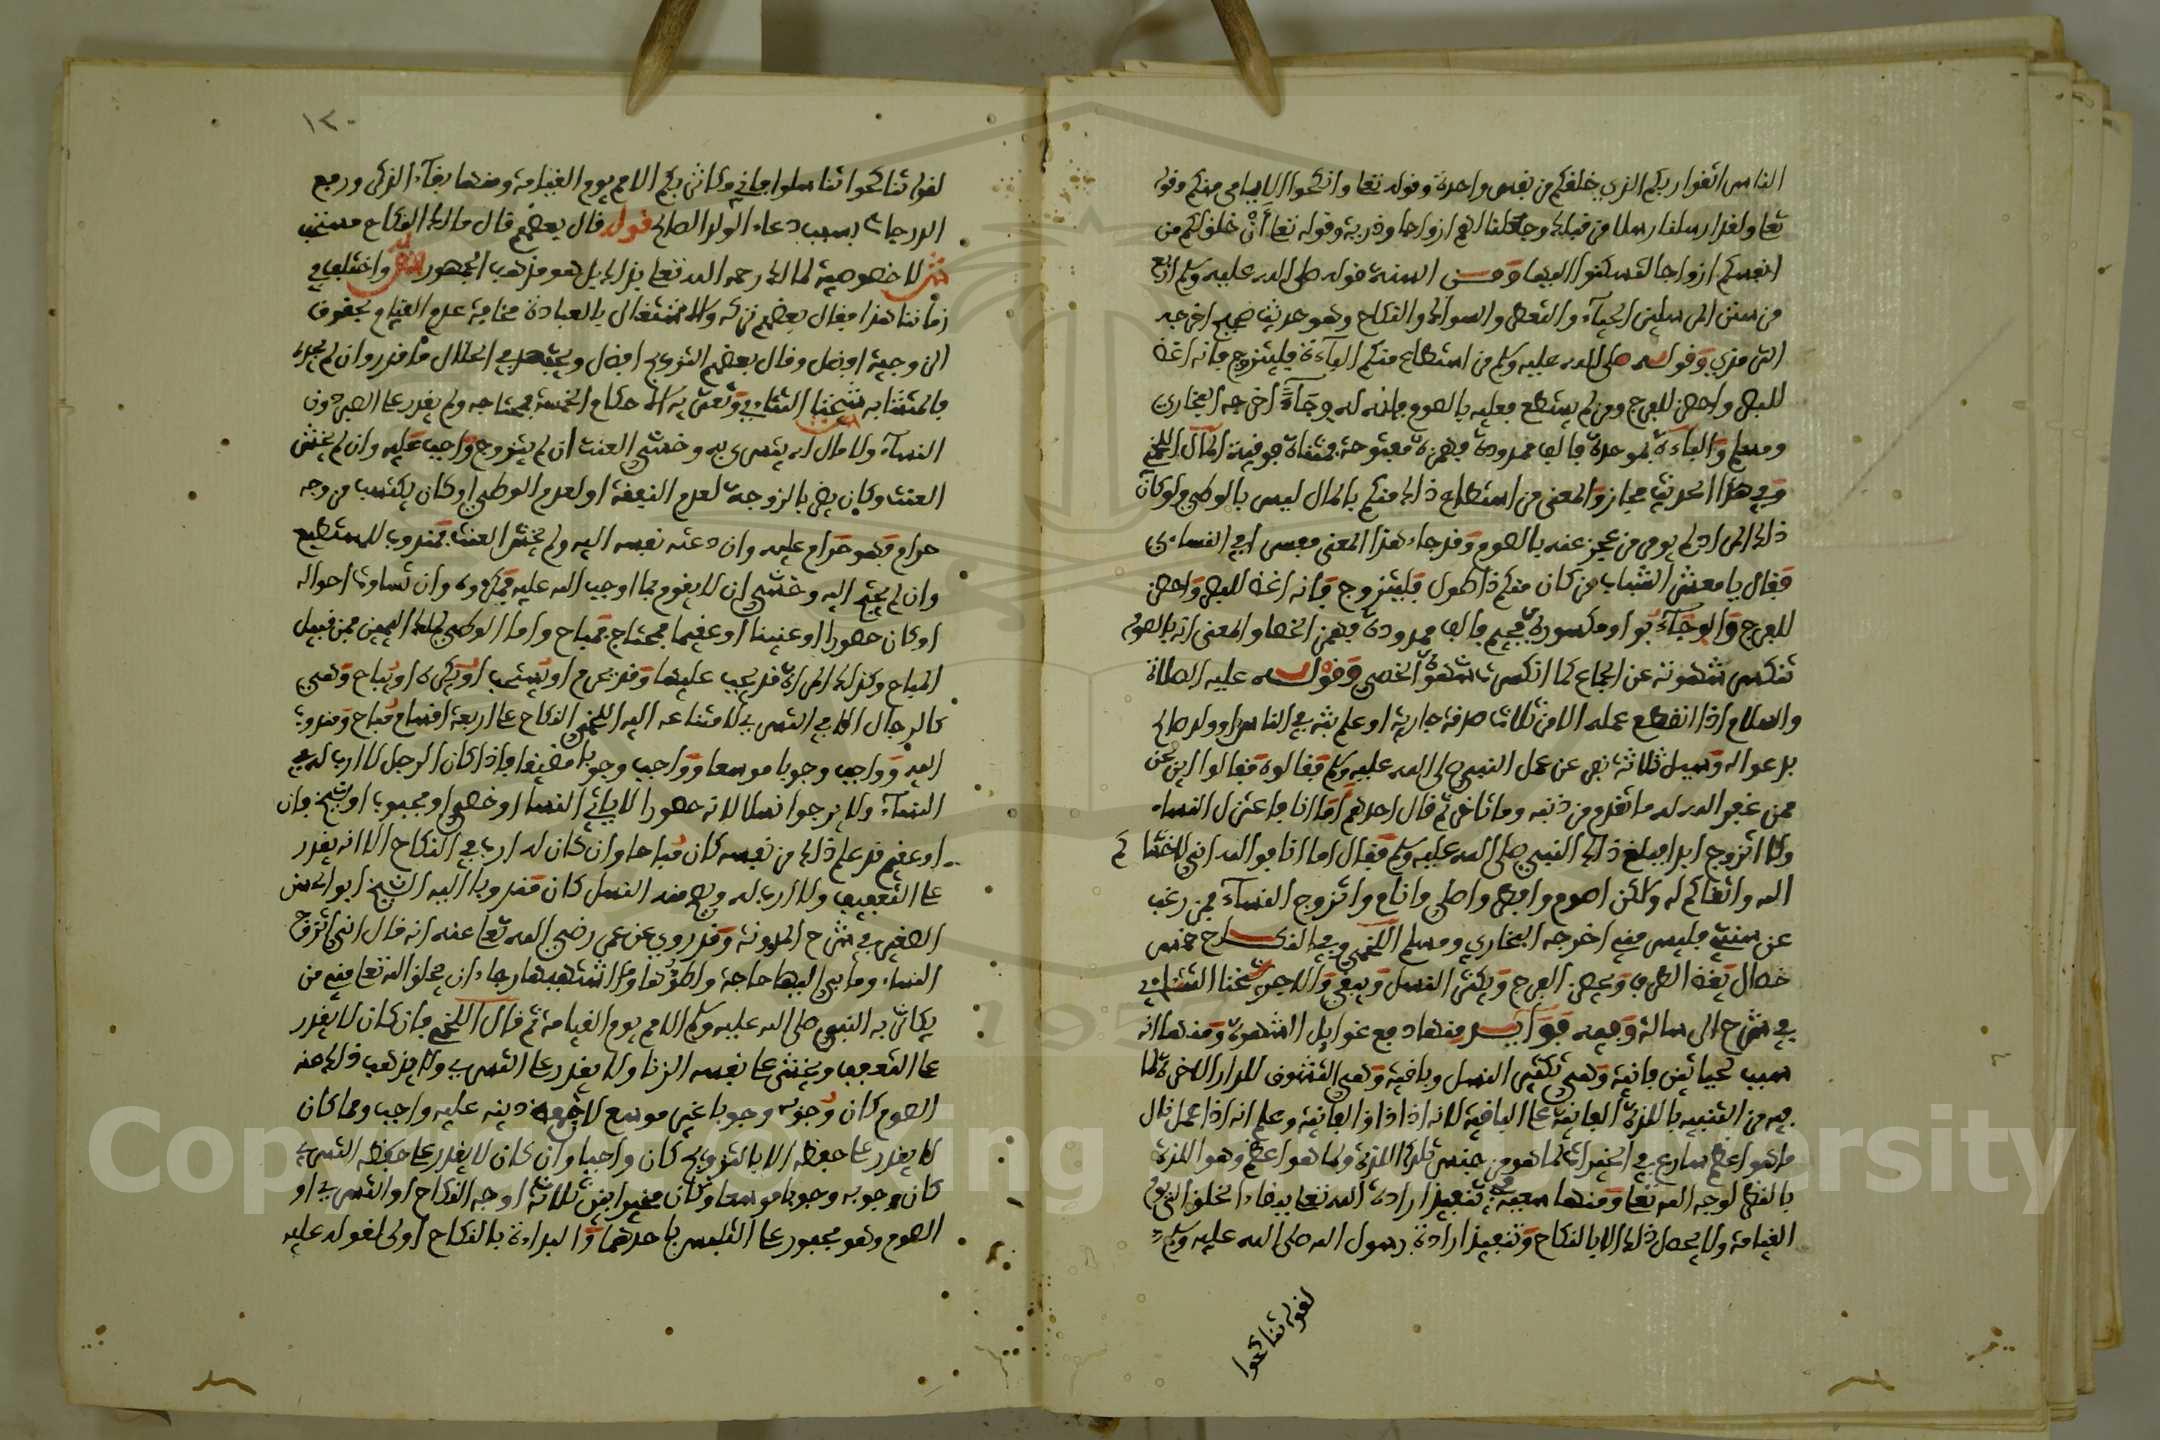 الناس اتقوا ربكم الذي خلقكم من نفس واحدة وقوله تعا وانكحوا الايامى منكم وقوله
تعا ولقد ارسلنا رسلا من قبلك وجعلنا لهم ازواجا وذرية وقوله تعا أن خلق لكم من
انفسكم ازواجا لتسكنوا اليها ومن السنة قوله صلى الله عليه وسلم اربع
من سنن المرسلين الحياء والتعطر والسواك والنكاح وهو حديث صحيح اخرجه
الترمذي وقوله صلى الله عليه وسلم من استطاع منكم الباءة فليتزوج فانه اغض
للبصر واحصن للفرج ومن لم يستطع فعليه بالصوم فانه له وجاء اخرجه البخاري
ومسلم والباءة بموحدة فالف ممدودة فهمزة مفتوحة فمثناة فوقية المال اللخمي
وفي هذا الحديث مجاز والمعنى من استطاع ذلك منكم بالمال ليس بالوطئ ولو كان
ذلك المراد لم يومر من عجز عنه بالصوم وقد جاء هذا المعنى مفسرا في النساءي
فقال يا معشر الشباب من كان منكم ذا طول فليتزوج فانه اغض للبصر واحصن
للفرج والوجاء بواو مكسورة فجيم فالف ممدودة فهمز الخصا والمعنى انه بالصوم
تنكسر شهوته عن الجماع كما انكسرت شهوة الخصي وقوله عليه الصلاة
والسلام اذا انقطع عمله الا من ثلاث صدقة جارية او علم بثه في الناس او ولد صالح
يدعو له وسيل ثلاثة نفر عن عمل النبي صلى الله عليه وسلم فقالوه فقالوا اين نحن
ممن غفر الله له ما تقدم من ذنبه وما تاخر ثم قال احدهم اما انا فاعتزل النساء
ولا اتزوج ابدا فبلغ ذلك النبي صلى الله عليه وسلم فقال اما انا فوالله اني لاخشاكم
الله واتقاكم له ولكن اصوم وافطر واصلي وانام واتزوج النساء فمن رغب
عن سنتي فليس مني اخرجه البخاري ومسلم اللخمي وفي النكاح خمس
خصال يغض الطرف ويحصن الفرج ويكثر النسل ويبقي والاجر شيخنا التتاءي
في شرح الرسالة وفيه فوايد منها دفع غوايل الشهوة ومنها انه
سبب لحياتين فانية وهي تكثير النسل وباقية وهي التشوف للدار الاخرة لما
فيه من التنبيه باللذة الفانية عا الباقية لانه اذا ذاق الفانية وعلم انه اذا عمل نال
ما هو اعظم سارع في الخيرات لما هو من جنس تلك اللذة ولما هو اعظم وهو اللذة
بالنظر لوجه الله تعا ومنها سعيه في تنفيذ ارادة الله تعا ببقاء الخلق الى يوم
القيامة ولا يحصل ذلك الا بالنكاح وتنفيذ ارادة رسول الله صلى الله عليه وسلم
لقوله تناكحوا
١٣٠
لقوله تناكحوا تناسلوا فاني مكاثر بكم الامم يوم القيامة ومنها بقاء الذكر ورفع
الدرجات بسبب دعاء الولد الصالح قوله قال بعضهم قال مالك النكاح مستحب
ش لا خصوصية لمالك رحمه الله تعا بذلك بل هو مذهب الجمهور واختلف في
زماننا هذا فقال بعضهم تركه والاشتغال بالعبادة مخافة عدم القيام بحقوق
الزوجية افضل وقال بعضهم التزويج افضل ويجتهد في الحلال ما قدر وان لم يجد
فالمتشابه شيخنا التتاءي وتعتريه الاحكام الخمسة فمحتاجه ولم يقدر عا الصبر دون
النساء ولا مال له يتسرى به وخشي العنت ان لم يتزوج واجب عليه وان لم يخش
العنت وكان يضر بالزوجة لعدم النفقة او لعدم الوطئ او كان يكتسب من وجه
حرام فهو حرام عليه وان دعته نفسه اليه ولم يخش العنت فمندوب للمستطيع
وان لم يحتج اليه وخشي ان لا يقوم بما اوجب الله عليه فمكروه وان تساوت احواله
او كان حصورا او عنينا او عقيما فمحتاج فمباح واما الوطئ بملك اليمين فمن قبيل
المباح وكذلك المراة قد يجب عليها وقد يحرم او يستحب او يكره او يباح وهي
كالرجال الا في التسري لامتناعه اليه اللخمي النكاح عا اربعة اقسام مباح ومندوب
اليه وواجب وجوبا موسعا وواجب وجوبا مضيقا فاذا كان الرجل لا ارب له في
النساء ولا يرجوا نسلا لانه حصورا لا ياتي النسا او خصي او مجبوب او شيخ فان
او عقيم قد علم ذلك من نفسه كان مباحا وان كان له ارب في النكاح الا انه يقدر
عا التعفيف ولا ارب له ويصح منه النسل كان مندوبا اليه الشيخ ابو الحسن
الصغير في شرح المدونة وقد روي عن عمر رضي الله تعا عنه انه قال اني اتزوج
النساء وما بي اليها حاجة واطؤها وما اشتهيها رجاء ان يخلق الله تعا مني من
يكاثر به النبي صلى الله عليه وسلم الامم يوم القيامة ثم قال اللخمي فان كان لا يقدر
عا التعفف ويخشى عا نفسه الزنا ولا يقدر عا التسري ولا يذهب ذلك عنه
الصوم كان وجوبه وجوبا غير موسع دينه عليه واجب ومما كان
لا يقدر عا حفظه الا بالتزويج كان واجبا وان كان لا يقدر عا حفظه التسري
كان وجوبه وجوبا موسعا وكان مخيرا بين ثلاثة اوجه النكاح او التسري او
الصوم وهو مجبور عا التلبس باحدهما والبداءة بالنكاح اولى لقوله عليه